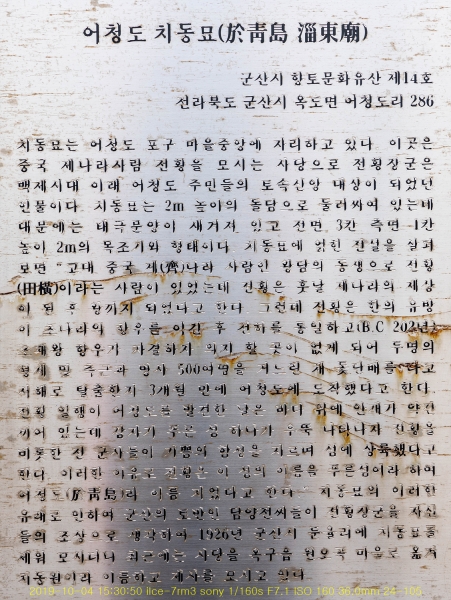 어청도 치동묘(於靑島 淄東廟)
군산시 향토문화유산 제14호
전라북도 군산시 옥도면 어청도리 286
치동묘는 어청도 포구 마을중앙에 자리하고 있다 이곳은
중국 제나라사람 전횡을 모시는 사당으로 전횡장군은
백제시대 이래 어청도 주민들의 토속신앙 대상이 되었던
인물이다 치동묘는 2m 높이의 돌담으로 둘러싸여 있는데
대문에는 태극문양이 새겨져 있고 전면 3칸 측면 1칸
높이 2m의 목조기와 형태이다 치동묘에 얽힌 전설을 살펴
보면 "고대 중국 제(齊)나라 사람인 왕담의 동생으로 전횡
(田橫)이라는 사람이 있었는데 전횡은 훗날 제나라의 재상
이 된 후 왕까지 되었다고 한다 그런데 전횡은 한의 유방
이 초나라의 항우를 이긴 후 천하를 통일하고(B.C 202년)
초패왕 항우가 자결하기 의지 할 곳이 없게 되어 두명의
형제 및 측근과 병사 500여명을 거느린 채 돛단배를 타고
서해로 탈출한지 3개월 만에 어청도에 도착했다고 한다.
전횡 일행이 어청도를 발견한 날은 바다 위에 안개가 약간
끼어 있는데 갑자기 푸른 섬 하나가 우뚝 나타나자 전횡을
비롯한 전 군사들이 기쁨의 함성을 지르며 섬에 상륙했다고
한다 이러한 이유로 전횡은 이 섬의 이름을 푸른섬이라 하여
어청도(於靑島)라 이름 지었다고 한다" 치동묘의 이러한
유래로 인하여 군산의 토반인 담양전씨들이 전횡장군을 자신
들의 조상으로 생각하여 1926년 군산시 둔율리에 치동묘를
세워 모시더니 최근에는 사당을 옥구읍 원오곡 마을로 옮겨
치동원이라 이름하고 제사를 모시고 있다
2019-10-04 15:30:50 ilce-7rm3 sony 1/160s F7.1 ISO 160 36.0mm 24-105